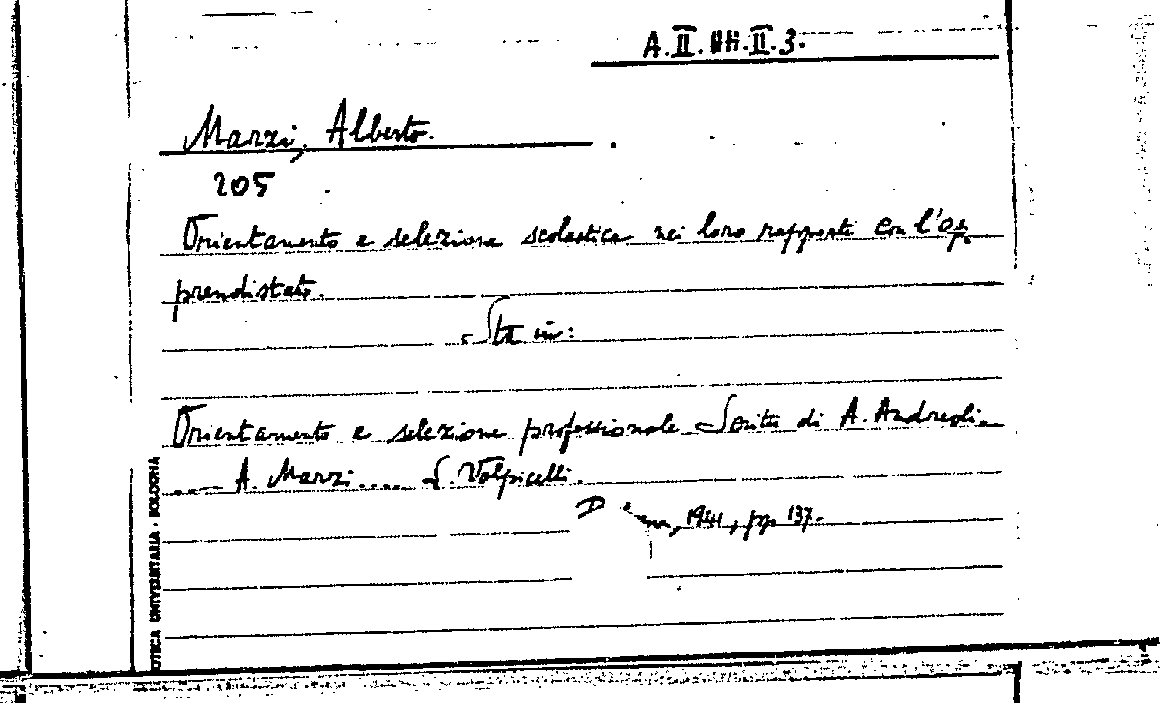 A.II.
II.3.
Marzi, Alberto.
205
Orientamento e selezione scolastica nei loro rapporti con l'ap-
prendistato.
Sta in:
Orientamento e selezione professionale Scritti di A. Andreoli_
.... A. Marzi..... L. Volpicelli.
1941, pp 137.
OTECA UNIVERSITARIA - BOLOGNA